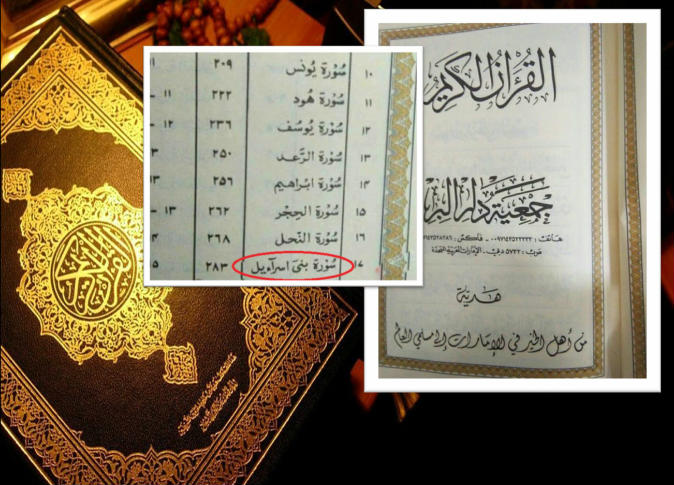 ١٠ سُورَة يُونس ٢٠٩
١١ سُورَة هُود ٢٢٢ ١١ -
١٢ سُورَة يُوسُف ٢٣٦ ١٢ -
١٣ سُورَة الرَّعد ٢٥٠
١٤ سُورَة ابراهيم ٢٥٦ ١٣
١٥ سُورَة الحِجر ٢٦٢ ١٣ -
١٦ سُورَة النَّحل ٢٦٨
١٧ سُورَة بنى اسرآءيل ٢٨٣
القرآن الكريم
جمعية دار البر
هاتف : - فاكس :
ص.ب: ٥٧٣٢ دبي - الإمارات العربية المتحدة
هدية
من أهل الخير في الإمارات إلى مسلمي العالم